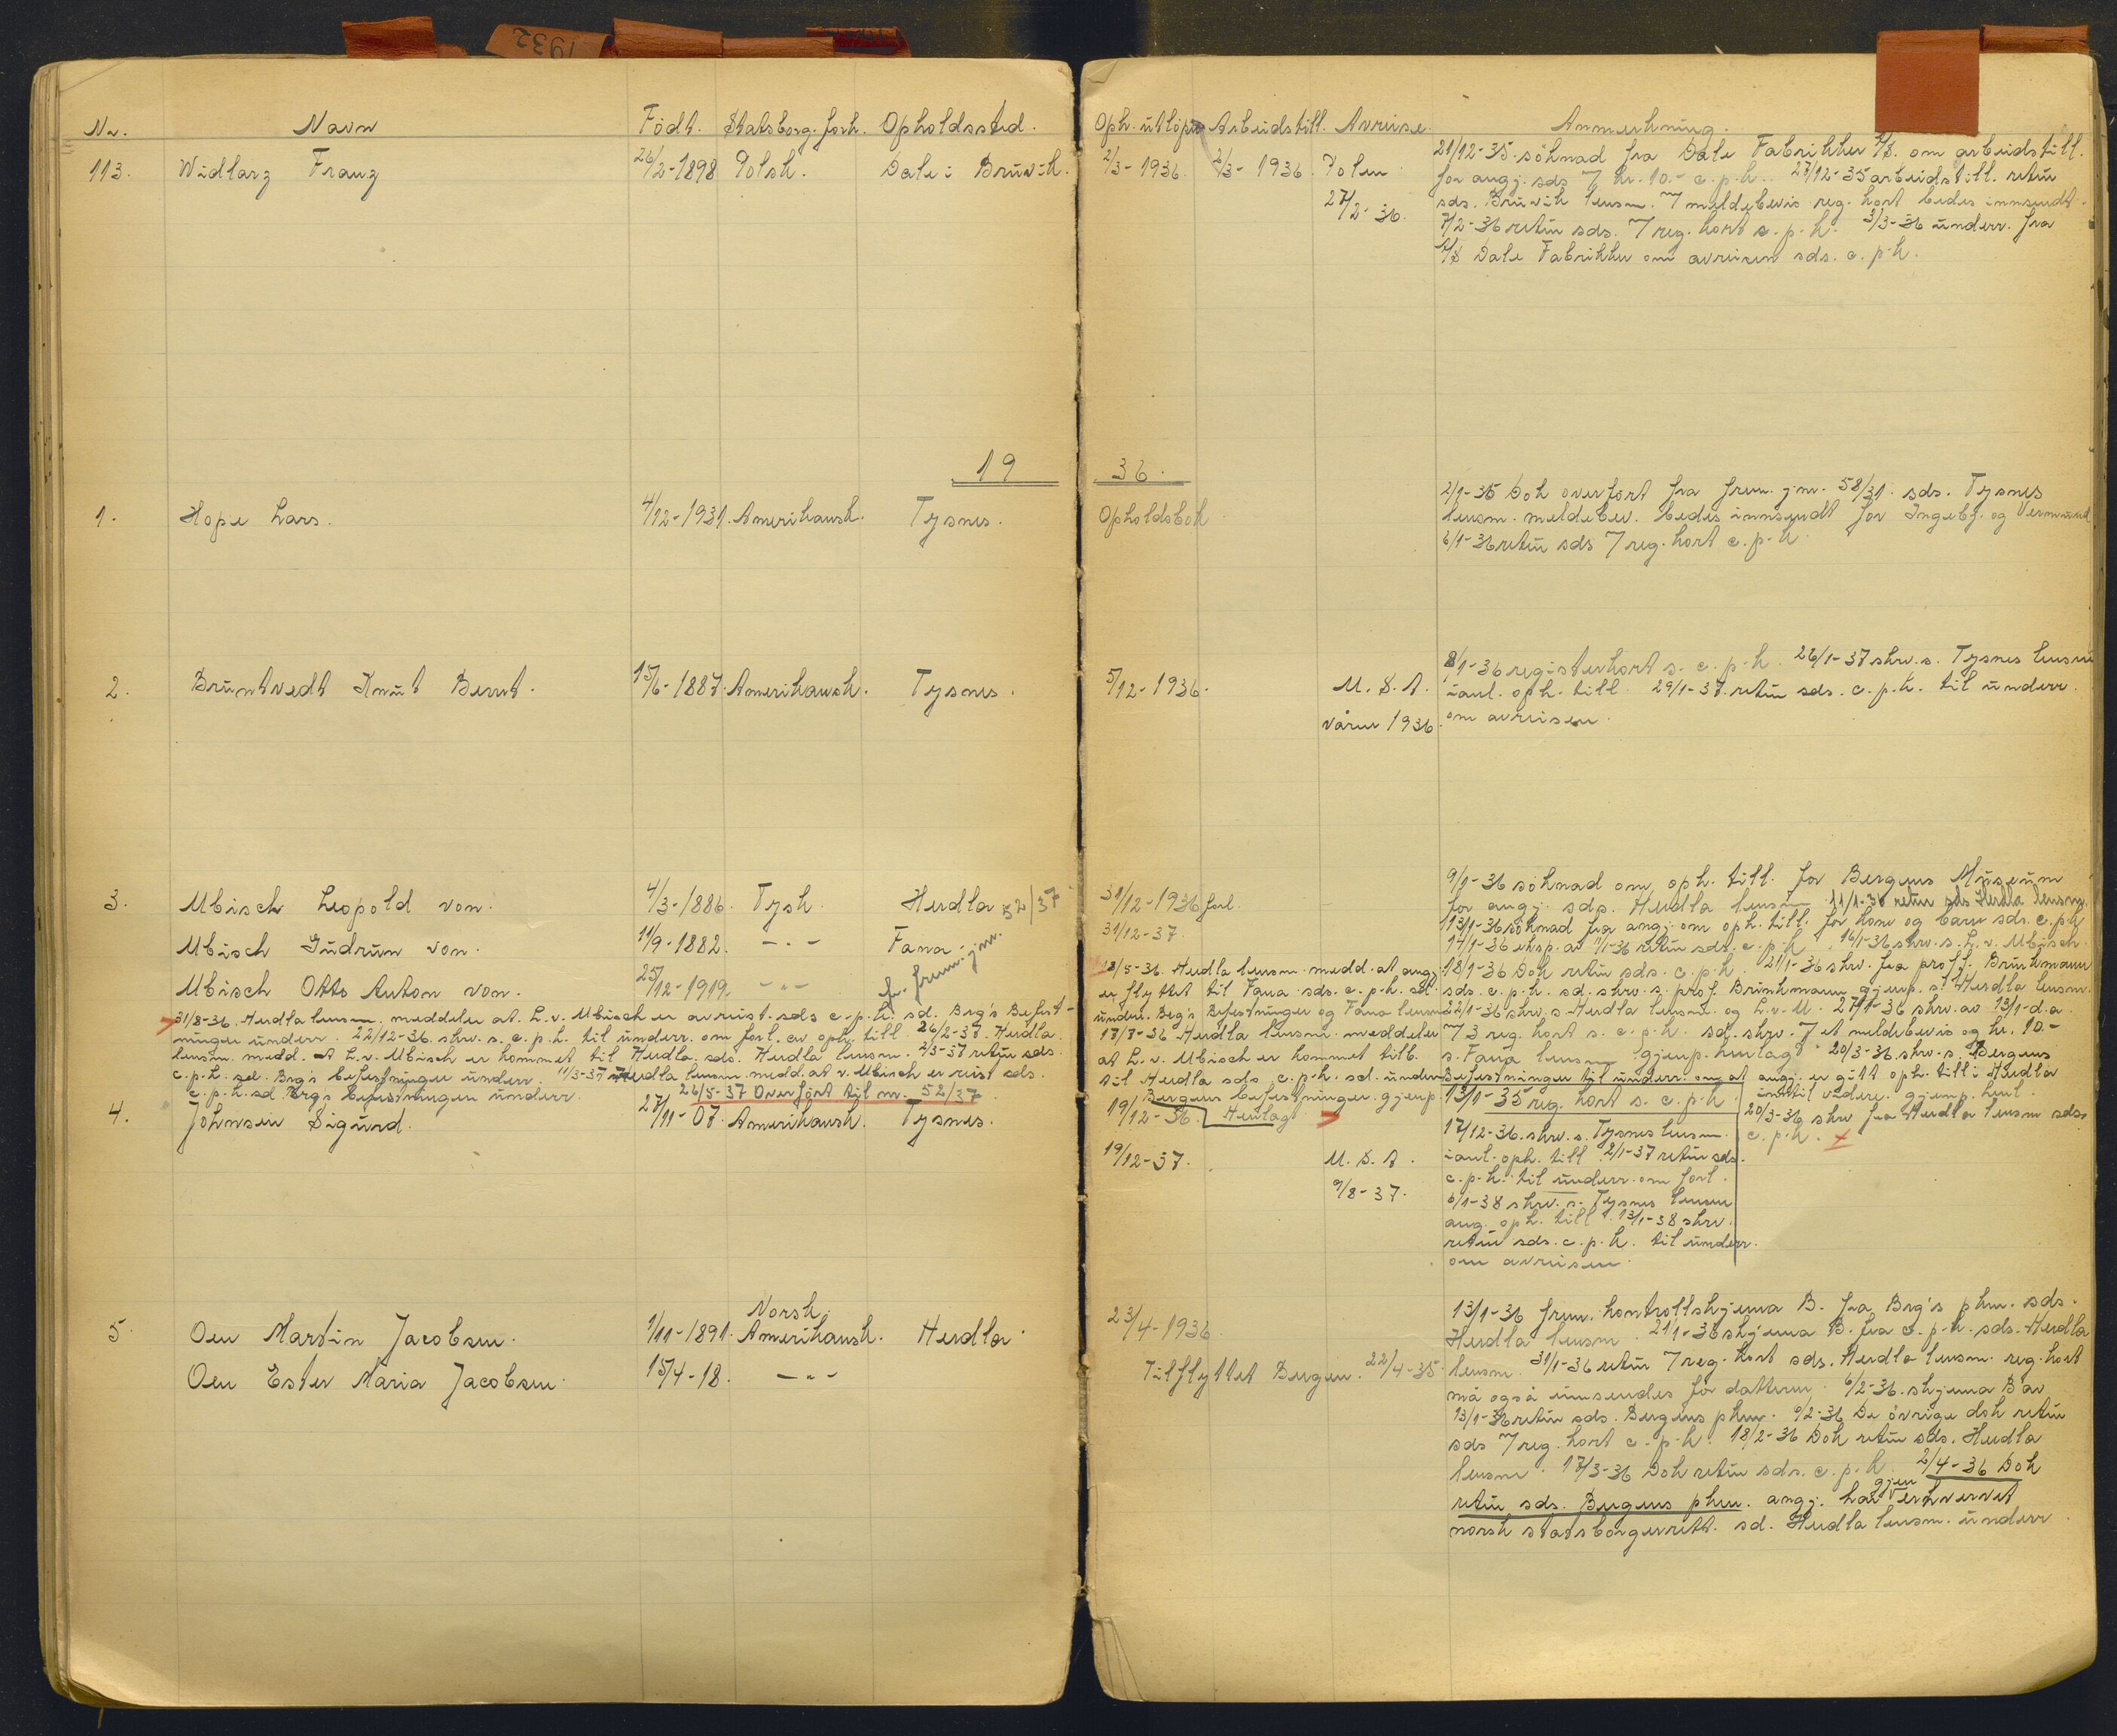 1932
Nr. Navn Födt. Statsborg. forh. Opholdssted. Oph. utlöper Arbeidstill. Avreise. Anmerkning.
113. Widlarz Franz 26/2-1898 Polsk. Dale i Bruvik. 2/3-1936. 2/3-1936. Polen 27/2-36.
21/12-35 söknad fra Dale Fabrikker A/S. om arbeidstill.
for angj. sds 7 kr. 10.- c.p.k. 27/12-35 arbeidstill. retur
sds. Bruvik lensm. 7 meldebevis reg. kort bedes innsendt.
7/2-36 retur sds. 7 reg. kort c.p.k. 3/3-36 underr. fra
A/S Dale Fabrikker om avreisen sds. c.p.k.
19 36.
1. Hope Lars. 4/12-1931. Amerikansk. Tysnes. Opholdsbok
2/1-36 Dok overfört fra frem. jnr. 58/31. sds. Tysnes
lensm. meldebev. bedes innsendt for Ingebj. og Vermund
6/1-36 retur sds 7 reg. kort c.p.k.
2. Bruntvedt Knut Bernt. 15/6-1887. Amerikansk. Tysnes. 5/12-1936. U.S.A. våren 1936.
8/1-36 registerkort s. c.p.k. 26/1-37 skrv. s. Tysnes lensm
i anl. oph. till. 29/1-37. retur sds. c.p.k. til underr.
om avreisen.
3. Ubisch Leopold von. 4/3-1886. Tysk. Herdla 52/37 31/12-1936 forl.
Ubisch Gudrun von. 11/9-1882. -"- Fana. 31/12-37.
Ubisch Otto Anton von. 25/12-1919. -"- fr. frem. jnr.
31/8-36. Herdla lensm. meddeler at L.v. Ubisch er avreist. sds c.p.k. sd. Brg's Befest-
ninger underr. 22/12-36. skrv. s. c.p.k. til underr. om forl. av oph. till. 26/2-37. Herdla
lensm. medd. at L.v. Ubisch er kommet til Herdla. sds. Herdla lensm. 2/3-37 retur sds.
c.p.k. sd. Brg's befestninger underr. 11/3-37 Herdla lensm. medd. at v. Ubisch er reist sds.
c.p.k. sd Brgs befestninger underr. 26/5-37 Overfört til nr. 52/37.
18/5-36. Herdla lensm. medd. at angj
er flyttet til Fana. sds. c.p.k. sd.
underr. Brg's Befestninger og Fana lensm
18/8-36 Herdla lensm. meddeler
at L.v. Ubisch er kommet tilb.
til Herdla sds c.p.k. sd. underr
Bergens befestninger. gjenp.
Henlagt
9/1-36 söknad om oph. till. for Bergens Museum
for angj. sds. Herdla lensm 11/1-36 retur sds Herdla lensm.
13/1-36 söknad fra angj. om oph. till. for kone og barn sds. c.p.k
14/1-36 eksp. av 9/1-36 retur sds. c.p.k. 16/1-36 skrv. s. L.v. Ubisch.
18/1-36 Dok retur sds. c.p.k. 21/1-36 skrv. fra proff. Brinkmann
sds. c.p.k. sd. skrv. s. prof. Brinkmann gjenp. s. Herdla lensm.
22/1-36 skrv. s. Herdla lensm. og L.v. U. 27/1-36 skrv. av 13/1-d.a.
7 3 reg. kort s. c.p.k. sd. skrv. 7 et meldebevis og kr. 10.-
s. Fana lensm gjenp. henlagt 20/3-36. skrv. s. Bergens
Befestninger til underr. om at angj. er gitt oph. till i Herdla
inntil videre. gjenp. henl.
20/3-36 skrv fra Herdla lensm sds.
c.p.k.
4. Johnsen Sigurd. 27/11-07. Amerikansk. Tysnes. 19/12-36. 19/12-37. U.S.A. 9/8-37.
13/1-35 reg. kort s. c.p.k.
17/12-36. skrv. s. Tysnes lensm.
i anl. oph. till. 2/1-37 retur sds.
c.p.k. til underr. om forl.
6/1-38 skrv. s. Tysnes lensm
ang. oph. till. 13/1-38 skrv.
retur sds. c.p.k. til underr.
om avreisen.
5. Oen Martin Jacobsen. 1/11-1891. Norsk. Amerikansk. Herdla. 23/4-1936.
Oen Ester Maria Jacobsen. 15/4-18. -"- Tilflyttet Bergen. 22/4-35.
13/1-36 frem. kontrollskjema B. fra Brg's pkm. sds.
Herdla lensm. 21/1-36 skjema B. fra c.p.k. sds. Herdla
lensm. 31/1-36 retur 7 reg. kort sds. Herdla lensm. reg. kort
må også innsendes for datteren. 6/2-36. skjema B av
13/1-36 retur sds. Bergens pkm. 9/2-36 De övrige dok retur
sds 7 reg. kort c.p.k. 18/2-36 Dok retur sds. Herdla
lensm. 17/3-36 Dok retur sds. c.p.k. 2/4-36 Dok
retur sds. Bergens pkm. angj. har gjen erhvervet
norsk statsborgerrett. sd. Herdla lensm. underr.